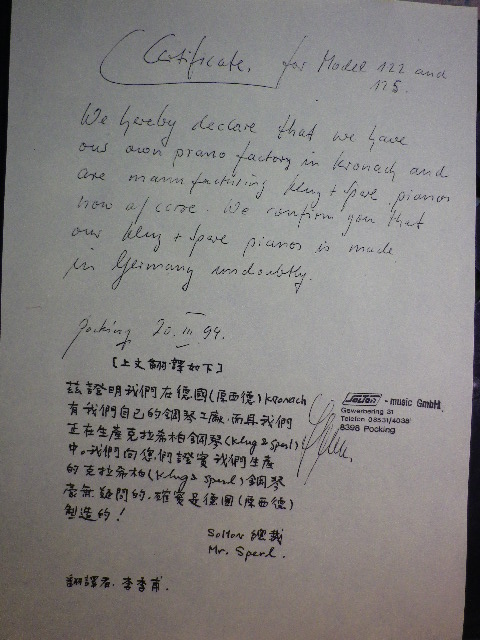 Certificate. for Model 122 and
125.
We hereby declare that we have
our own piano factory in Kronach and
are manufacturing Klug + Sperl pianos
now of corse. We confirm you that
our Klug + Sperl pianos is made
in Germany undoubtly.
Pocking 20. III. 94.
[上文翻譯如下]
茲證明我們在德國(原西德)Kronach
有我們自己的鋼琴工廠,而且我們
正在生產克拉希柏鋼琴(Klug & Sperl)
中。我們向您們證實我們生產
的克拉希柏(Klug & Sperl)鋼琴
毫無疑問的,確實是德國(原西德)
製造的!
Solton - music GmbH
Gewerbering 31
Telefon 08531/4038
8398 Pocking
Solton 總裁
Mr. Sperl.
翻譯者:李季甫.